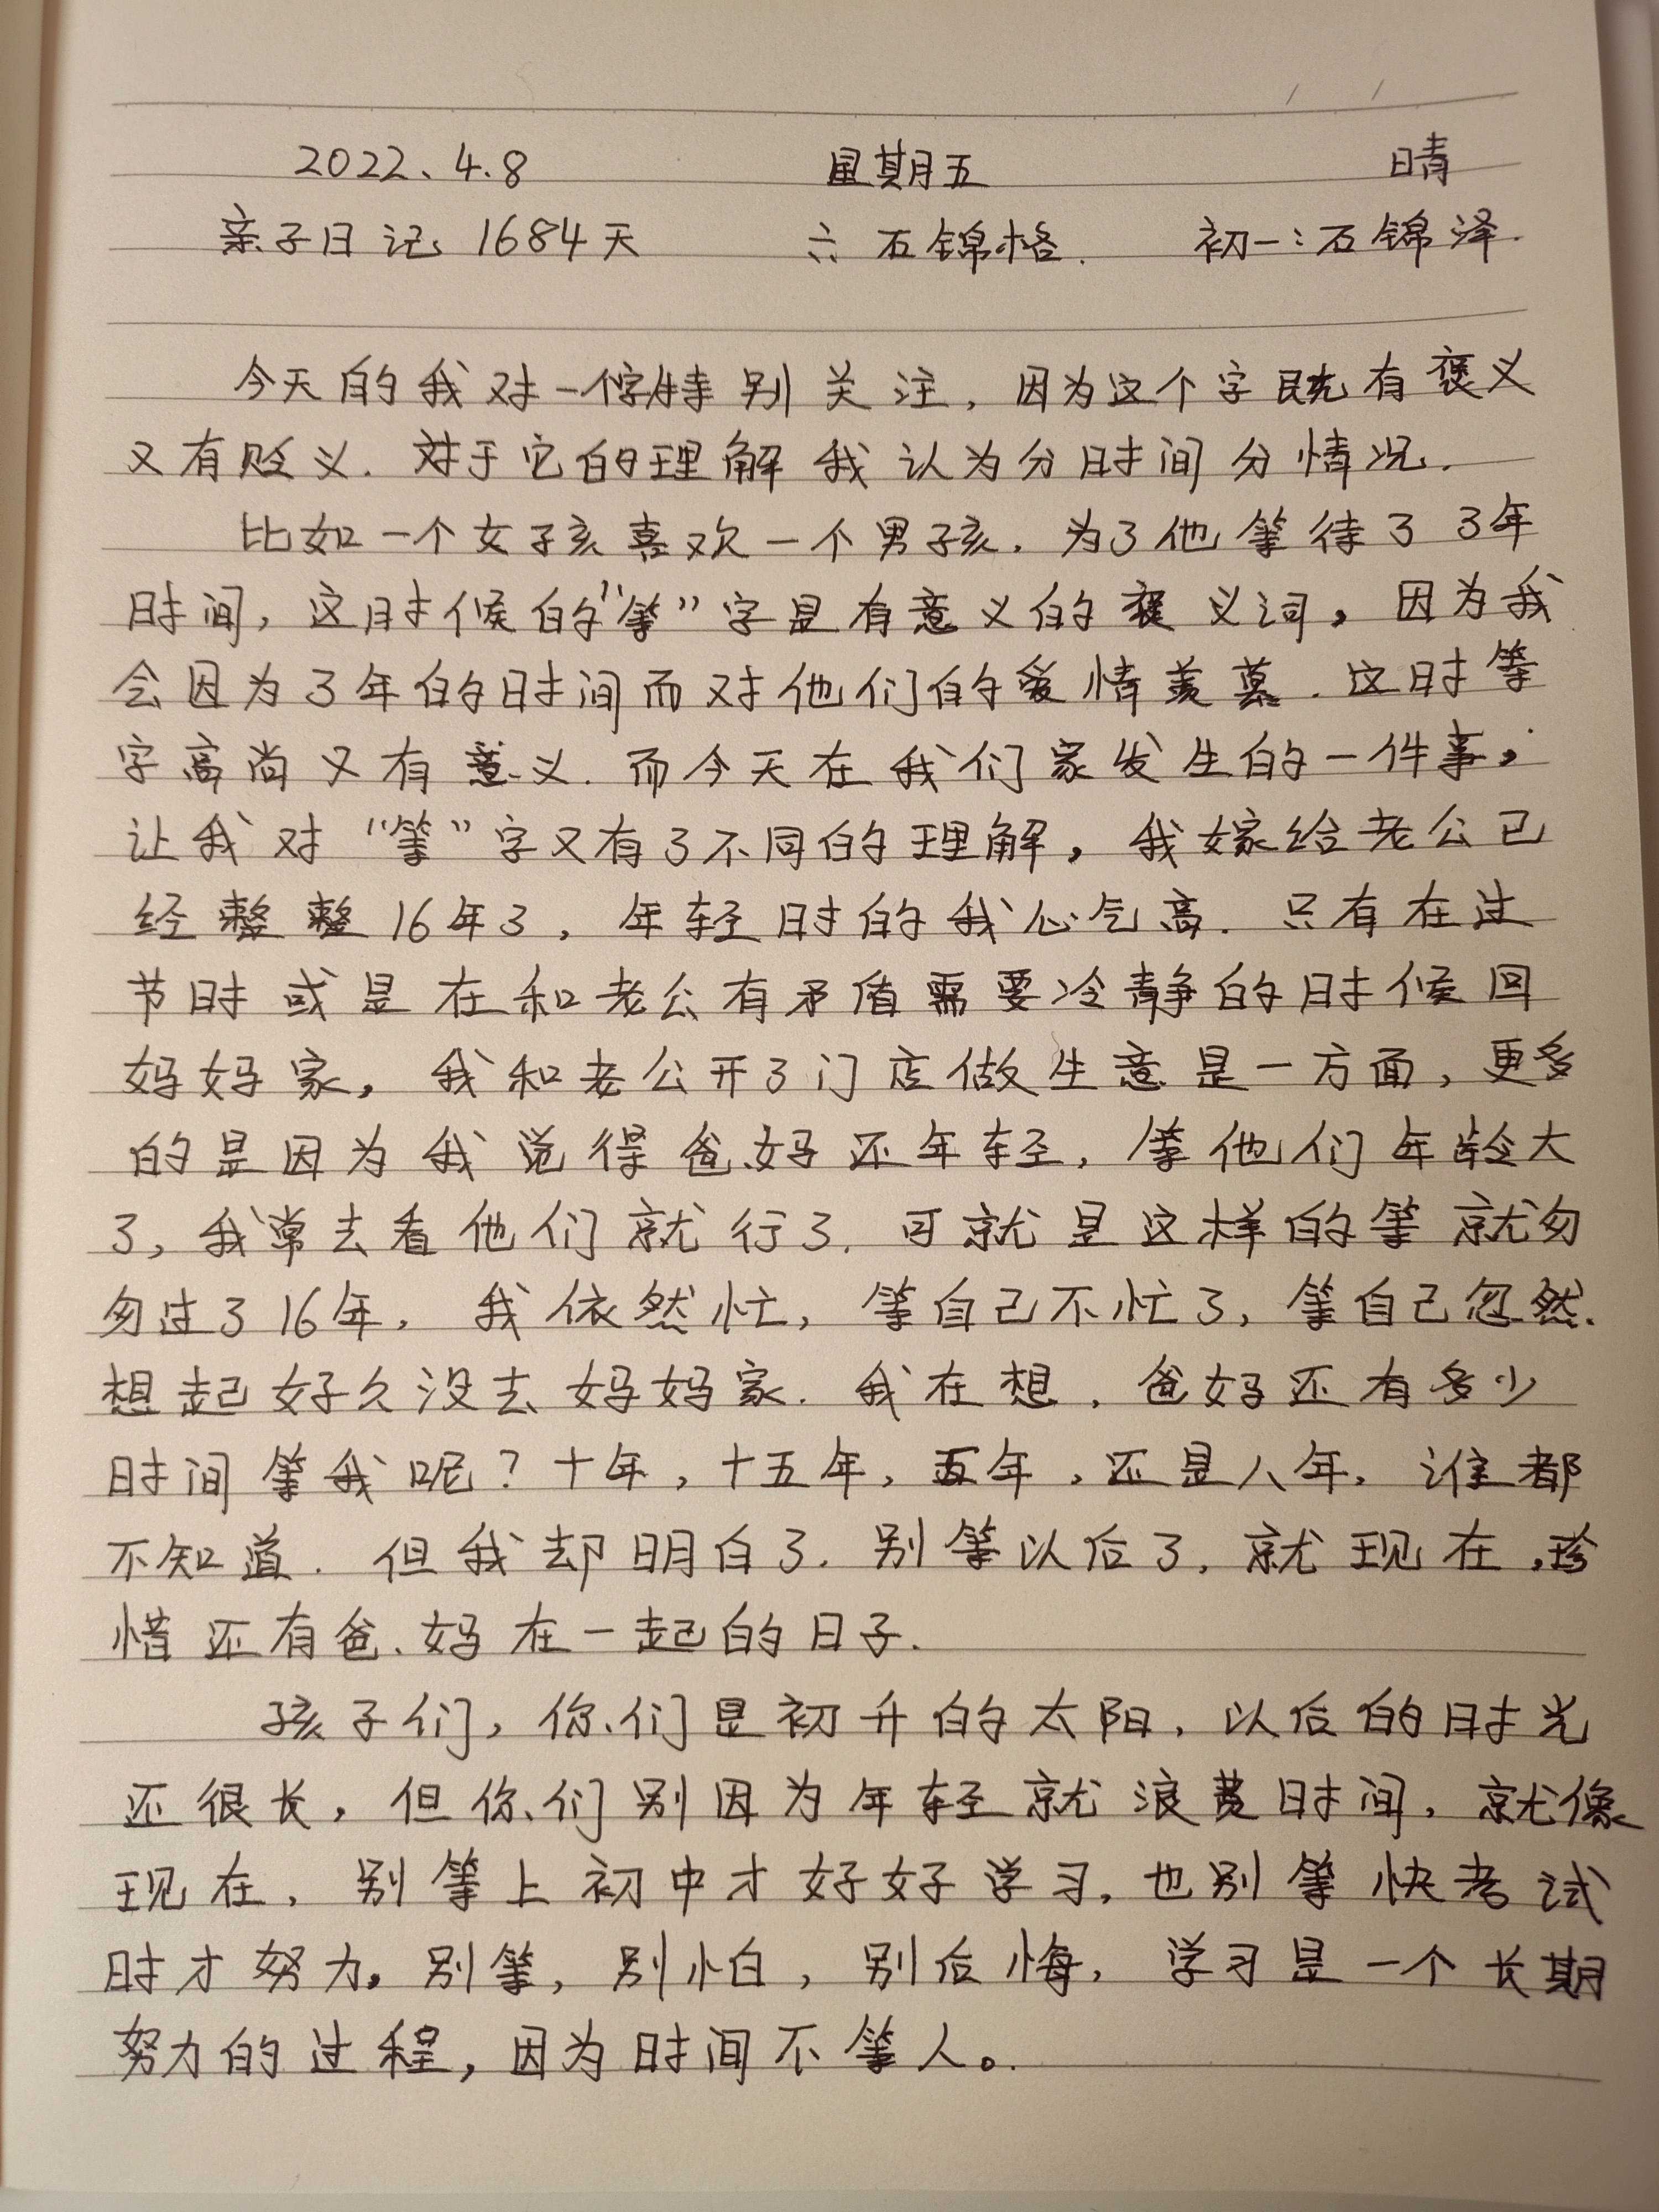 2022、4.8 星期五 晴
亲子日记 1684天 六 石锦格. 初一:石锦泽.
今天的我对一个字特别关注，因为这个字既有褒义
又有贬义.对于它的理解我认为分时间分情况.
比如一个女子孩喜欢一个男子孩.为了他等待了3年
时间,这时候的"等"字是有意义的褒义词,因为我
会因为3年的时间而对他们的爱情羡慕.这时等
字高尚又有意义.而今天在我们家发生的一件事,
让我对"等"字又有了不同的理解,我嫁给老公已
经整整16年了,年轻时的我心气高.只有在过
节时或是在和老公有矛盾需要冷静的时候回
妈妈家,我和老公开了门店做生意是一方面,更多
的是因为我觉得爸、妈还年轻,等他们年龄大
了,我常去看他们就行了.可就是这样的等就匆
匆过了16年,我依然忙,等自己不忙了,等自己忽然
想起好久没去妈妈家.我在想,爸妈还有多少
时间等我呢?十年,十五年,五年,还是八年,谁都
不知道.但我却明白了.别等以后了,就现在,珍
惜还有爸、妈在一起的日子.
孩子们,你们是初升的太阳,以后的时光
还很长,但你们别因为年轻就浪费时间,就像
现在,别等上初中才好好学习,也别等快考试
时才努力,别等,别怕,别后悔,学习是一个长期
努力的过程,因为时间不等人。